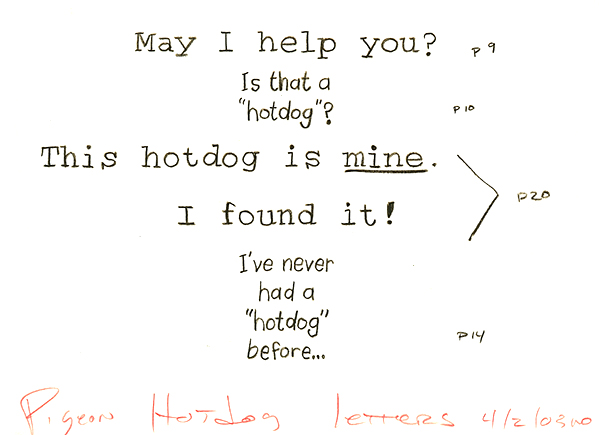 May I help you? p 9
Is that a
"hotdog"? p 10
This hotdog is mine.
p 20
I found it!
I've never
had a
"hotdog"
before... p 14
Pigeon Hotdog letters 4/2/03